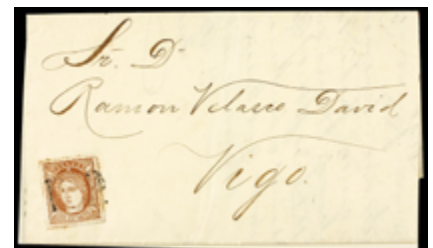 Sr. D.
Ramon Velasco David
Vigo.